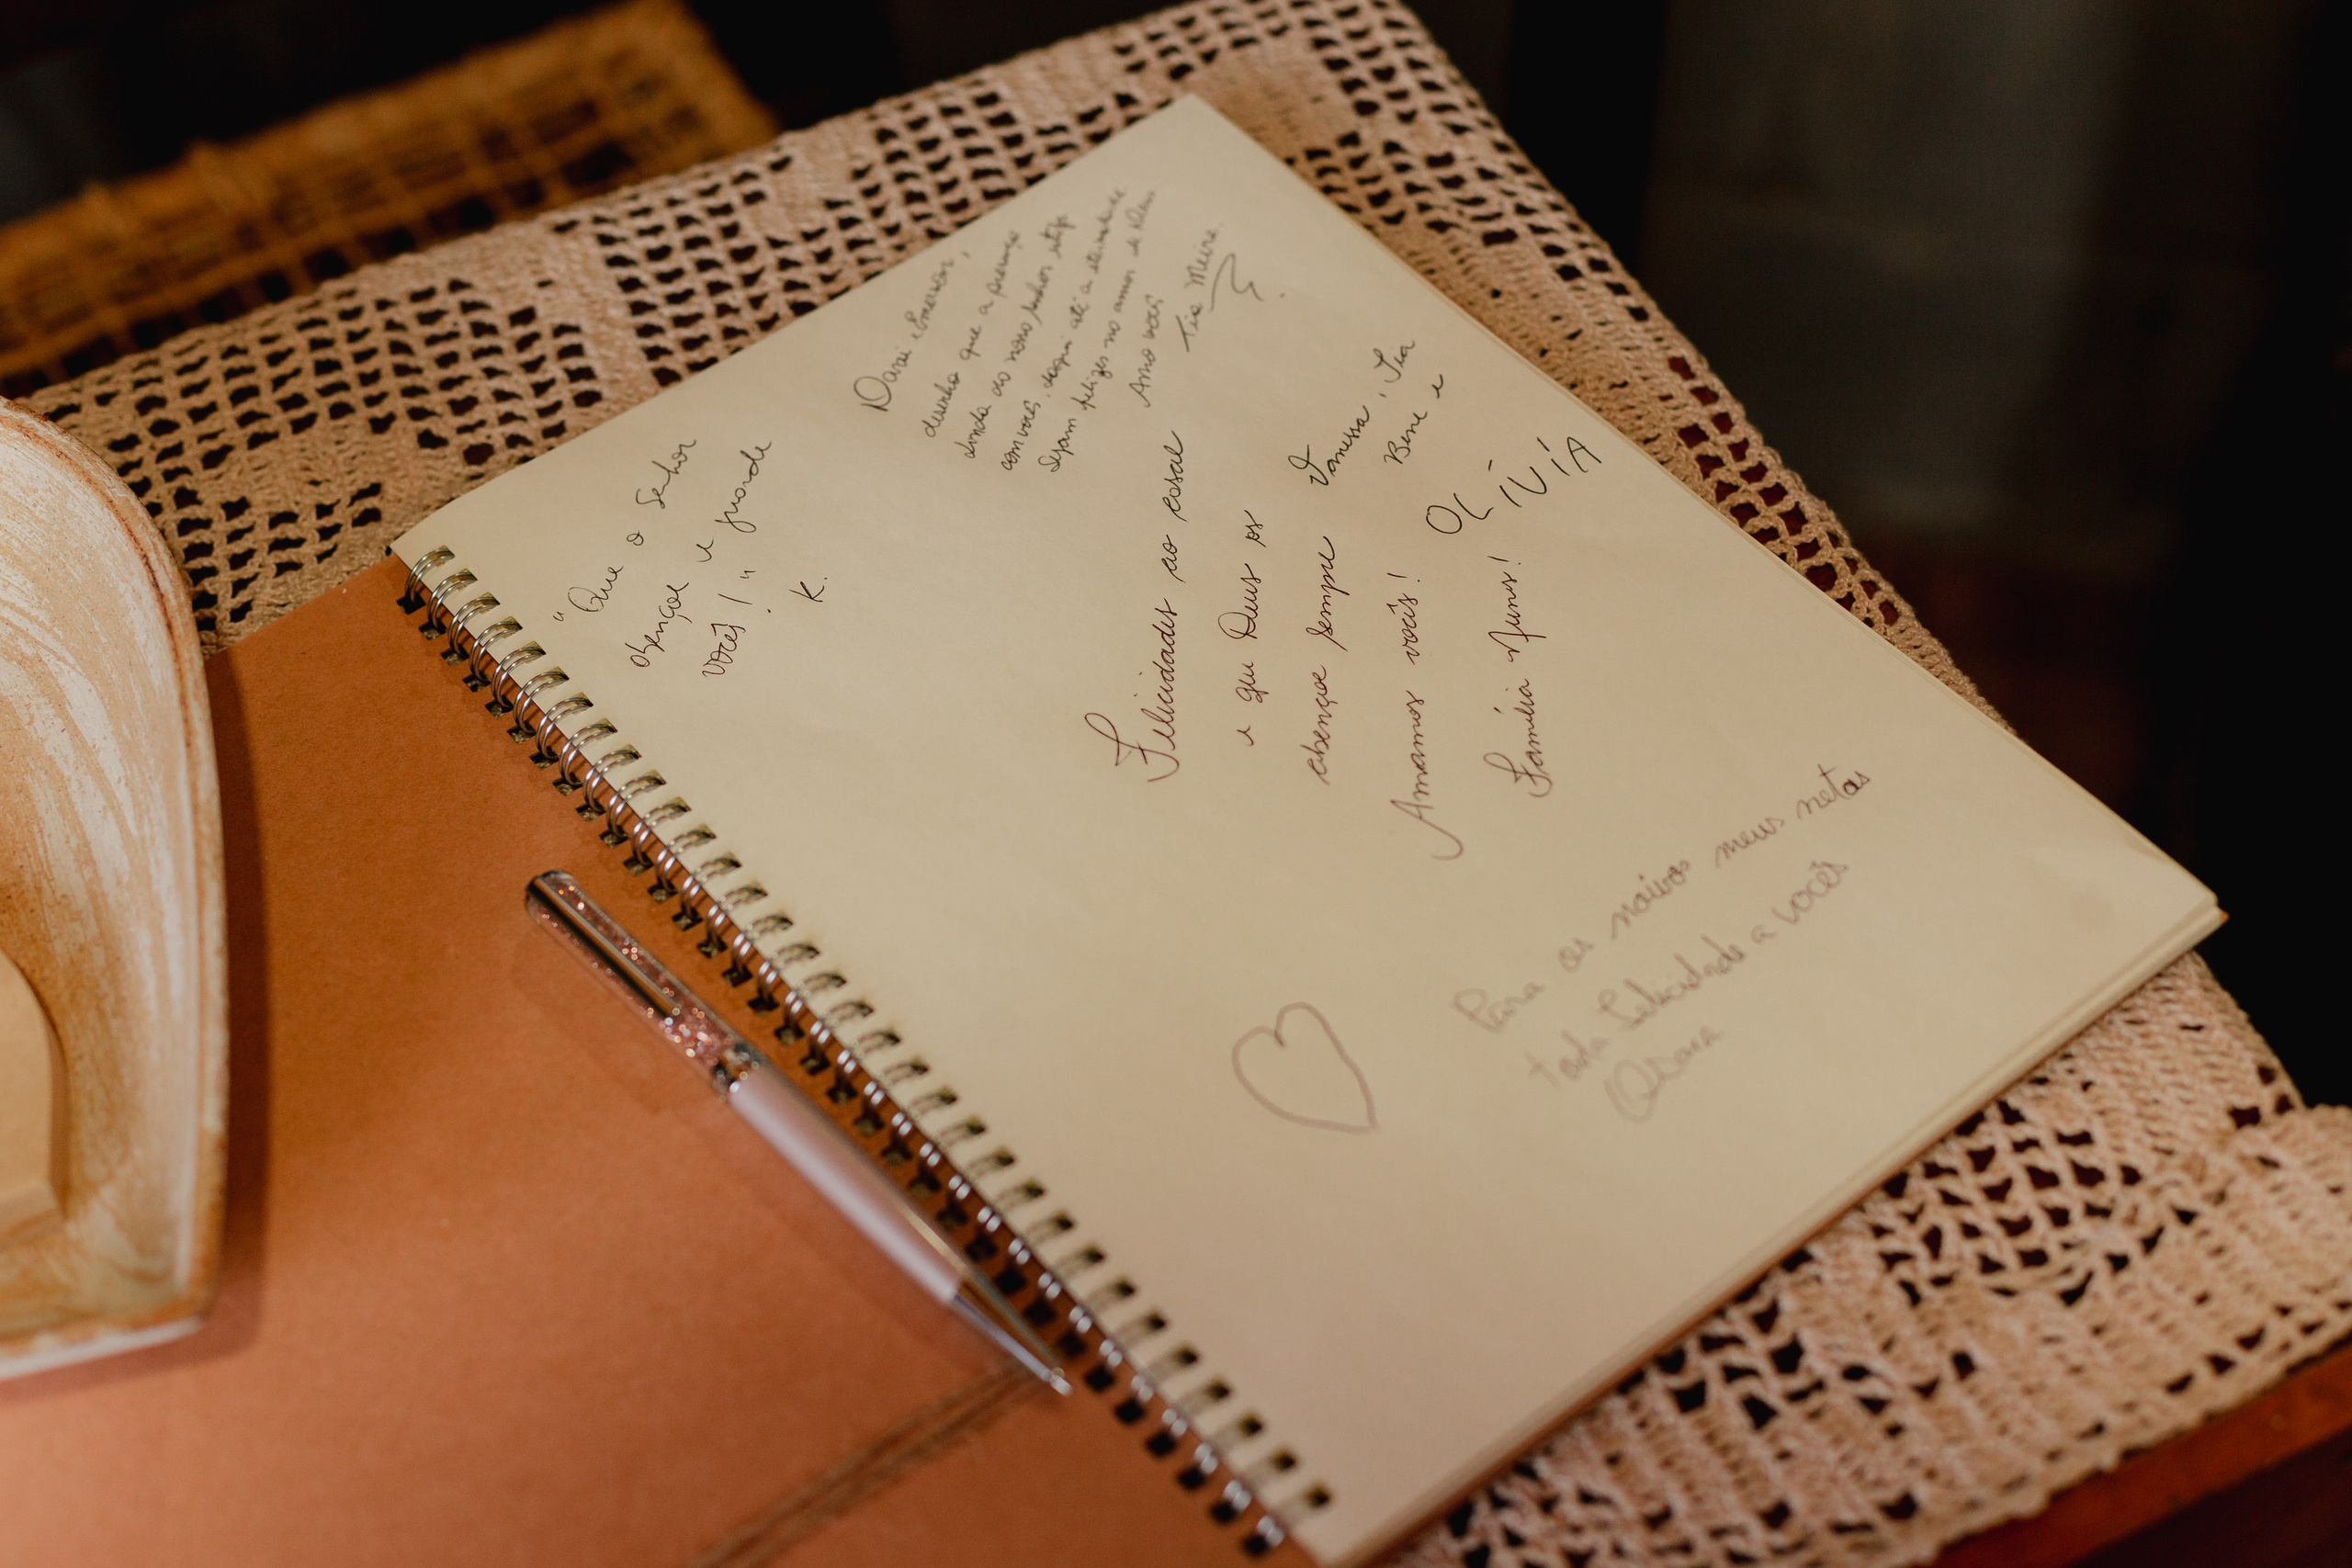 "Que o Senhor
abençoe e guarde
vocês!"
K.
Darai e Emerson,
desenho que a presença
ainda do nosso Senhor esteja
com vocês, daqui até a eternidade
Sejam felizes no amor de Deus
Amo vocês
Tia Meire.
Felicidades ao casal
e que Deus os
abençoe sempre
Amamos vocês!
Família Nunes!
Vanessa, Léa
Bene e
OLIVIA
Para os noivos meus netos
toda felicidade a vocês